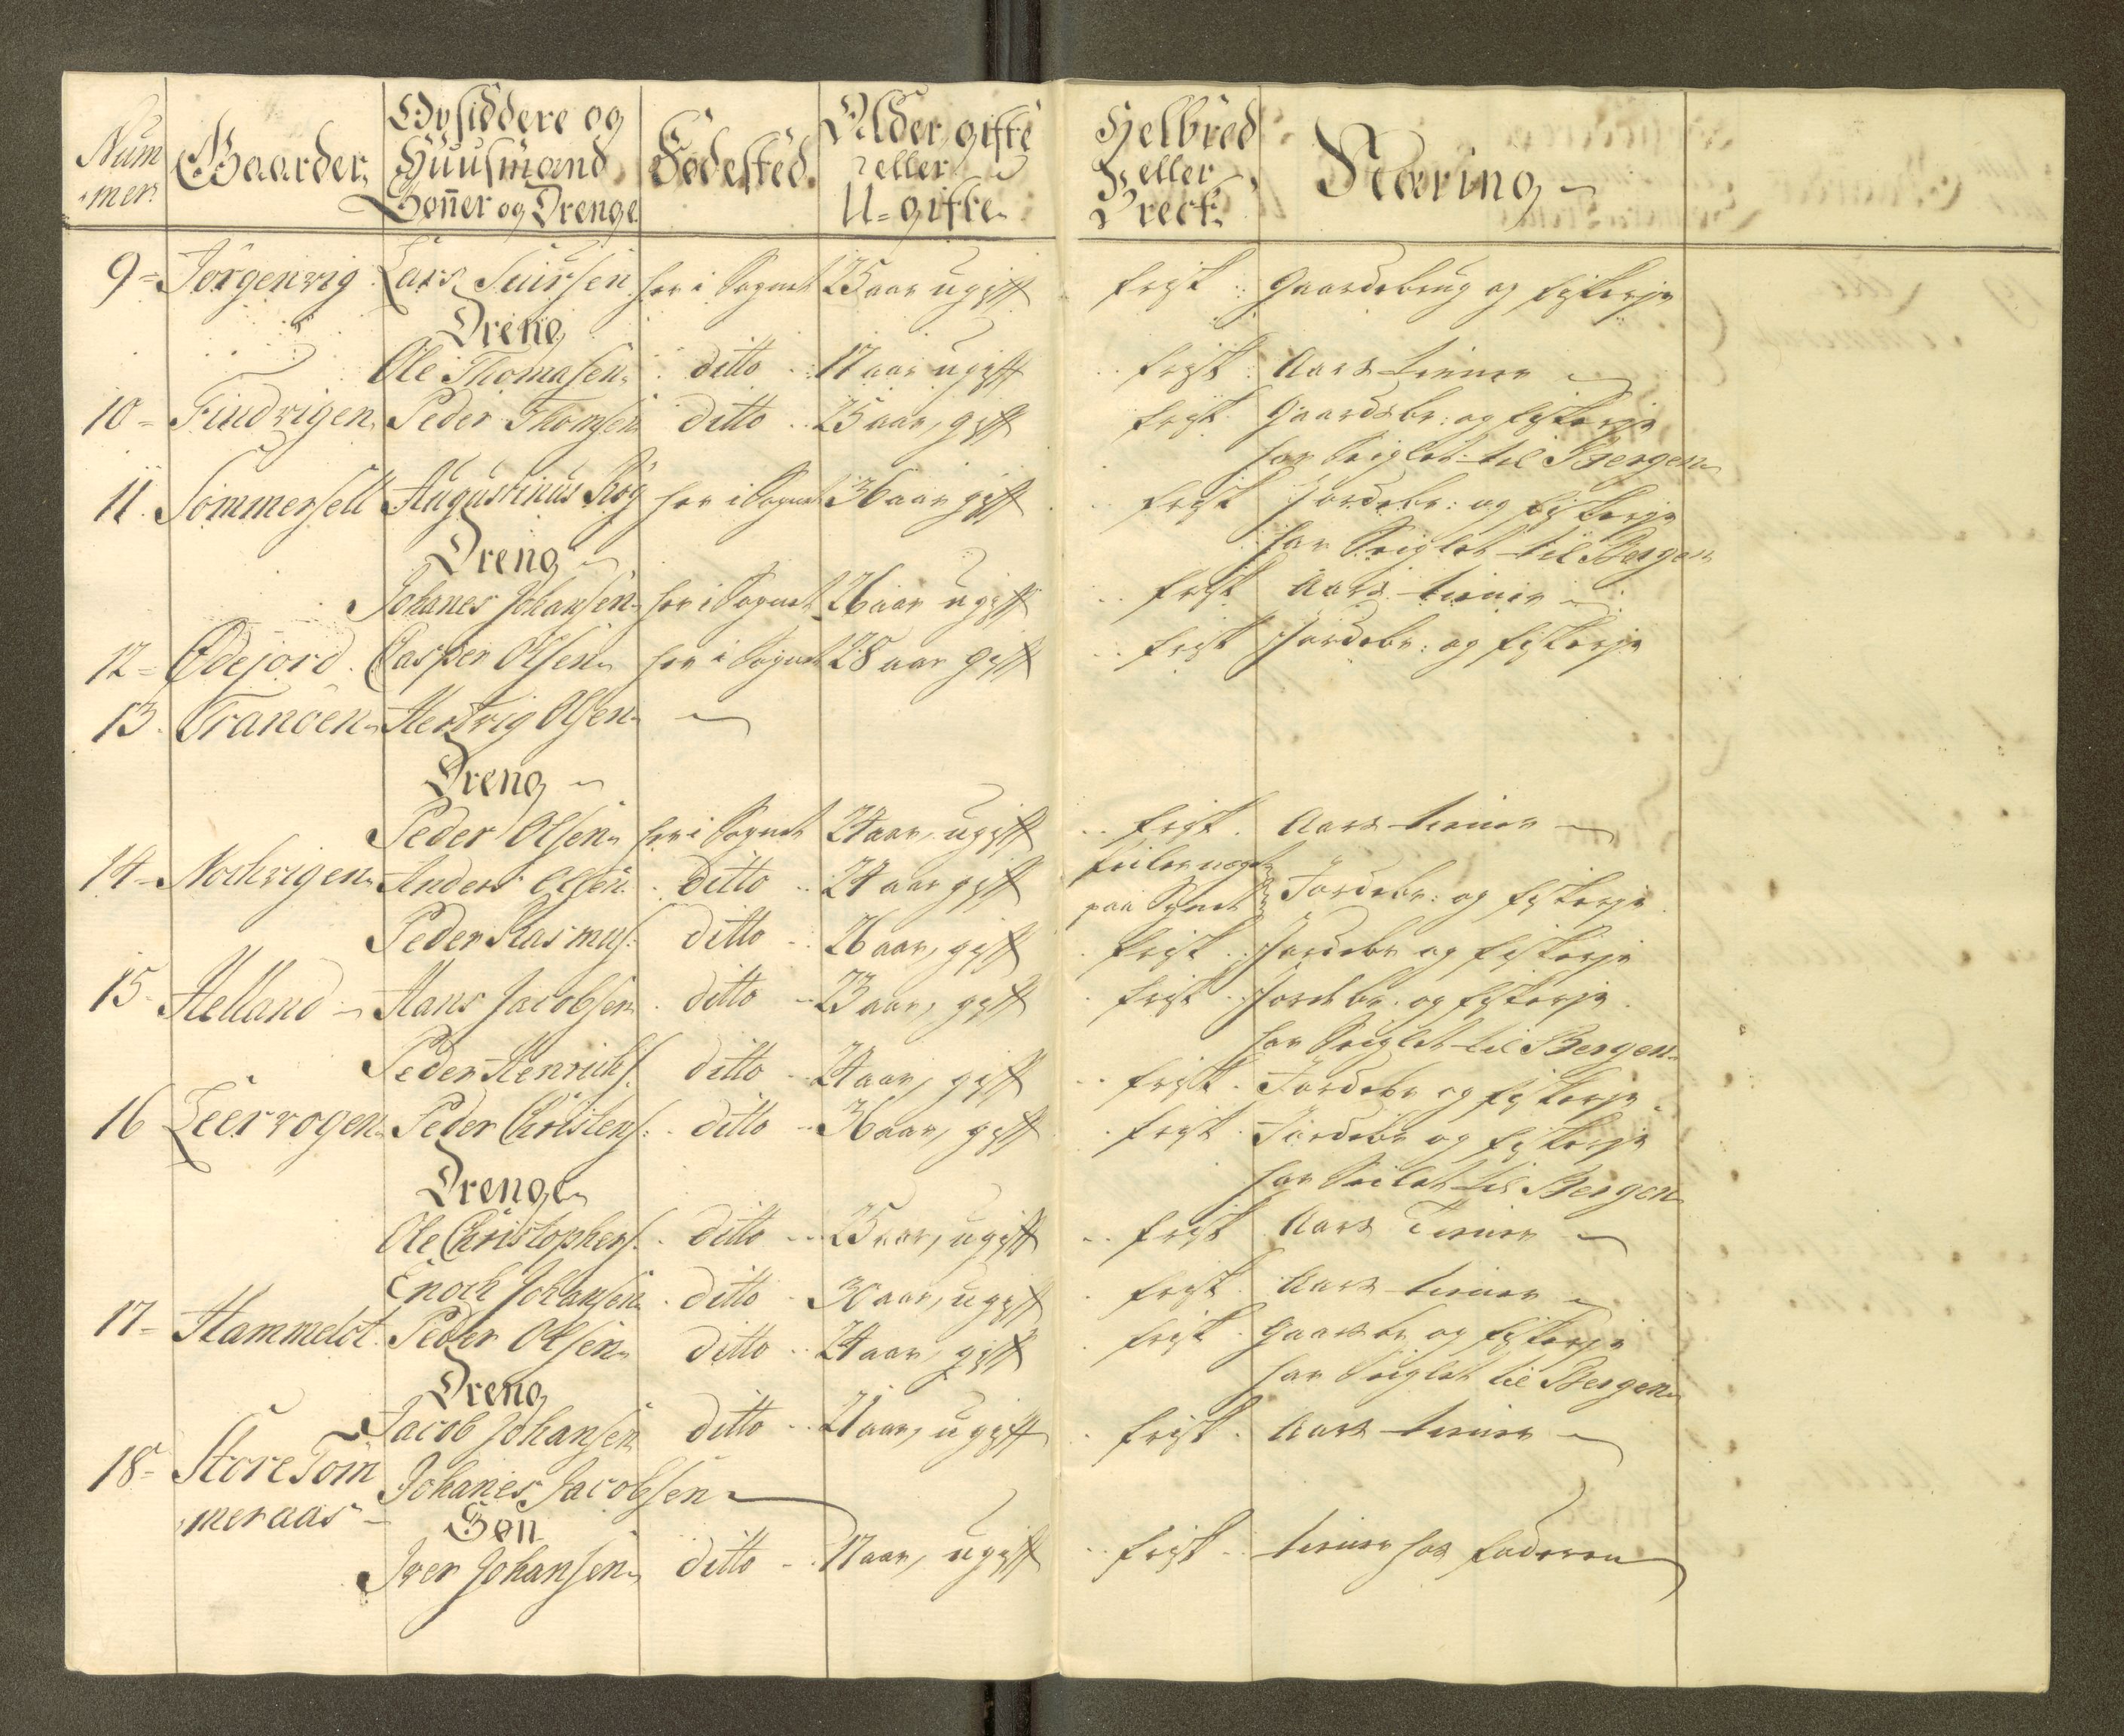 Num
mer
Gaarder
Opsiddere og
Huusmænd
Sønner og Drenge
Fødested
Alder, gifte
eller
U=gifte
Helbred
eller
Brøst
Næring
9 = Jörgenvig Lars Siursen her i Sognet 25 aar ugift frisk Gaardsbrug og fiskerje
Dreng
Ole Thomasen ditto 17 aar ugift frisk Aars tiener
10 = Findvigen Peder Thomsen ditto 25 aar, gift frisk Gaardsbr: og fiskerje
har Seiglet til Bergen
11. Sommersett Augustinus Røg her i Sognet 36 aar gift frisk Jordebr: og fiskerje
har Seiglet til Bergen
Dreng
Johanes Johansen her i Sognet 26 aar ugift frisk Aars tiener
12 = Ødejord Casper Olsen her i Sognet 28 aar gift frisk Jordebr: og fiskerje
13. Tranöen Hertvig Olsen
Dreng
Peder Olsen her i Sognet 24 aar, ugift frisk Aars tiener
14 = Nochvigen Anders Olsen ditto 24 aar gift feiler noget
paa Synet Jordebr: og fiskerje
Peder Rasmus: ditto 26 aar, gift frisk Jordebr og fiskerje
15 = Helland Hans Jacobsen ditto 23 aar, gift frisk Jordebr. og fiskerje
har Seiglet til Bergen
Peder Henrichs: ditto 24 aar, gift frisk Jordebr og fiskerje
16 Leervogen Peder Christens: ditto 36 aar, gift frisk Jordebr og fiskerje
har Seilet til Bergen
Drenge
Ole Christophers: ditto 25 aar, ugift frisk Aars Tiener
Enoch Johansen ditto 30 aar, ugift frisk Aars tiener
17 = Hammelöt Peder Olsen ditto 24 aar, gift frisk Gaardbr og fiskerje
har Seiglet til Bergen
Dreng
Jacob Johansen ditto 21 aar, ugift frisk Aars tiener
18 = Store Tom
meraas Johanes Jacobsen
Søn
Iver Johansen ditto 17 aar, ugift frisk tiener hos faderen